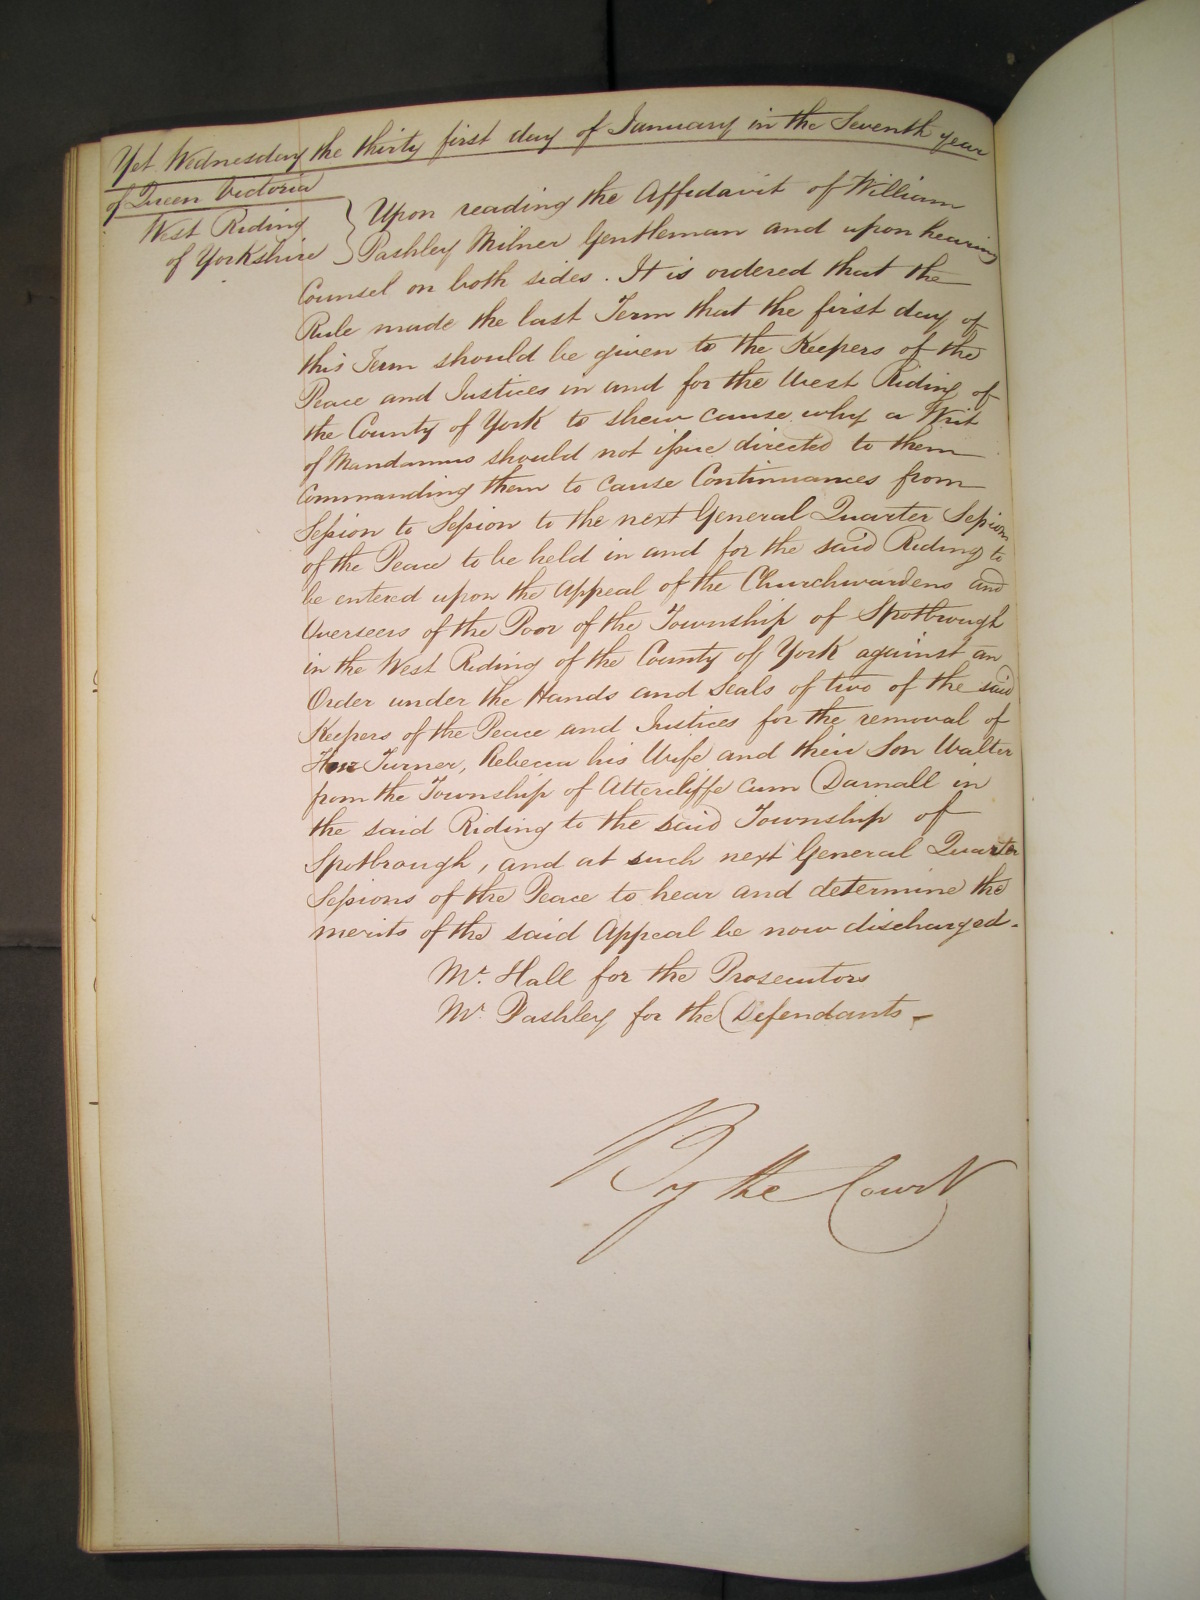 Yet Wednesday the thirty first day of January in the Seventh year
of Queen Victoria
West Riding
of Yorkshire
Upon reading the Affidavit of William
Pashley Milner Gentleman and upon hearing
Counsel on both sides. It is ordered that the
Rule made the last Term that the first day of
this Term should be given to the Keepers of the
Peace and Justices in and for the West Riding of
the County of York to shew cause why a Writ
of Mandamus should not issue directed to them
Commanding them to cause Continuances from
Session to Session to the next General Quarter Sessions
of the Peace to be held in and for the said Riding to
be entered upon the Appeal of the Churchwardens and
Overseers of the Poor of the Township of Spotbrough
in the West Riding of the County of York against an
Order under the Hands and Seals of two of the said
Keepers of the Peace and Justices for the removal of
Turner, Rebecca his Wife and their Son Walter
from the Township of Attercliffe cum Darnall in
the said Riding to the said Township of
Spotbrough, and at such next General Quarter
Sessions of the Peace to hear and determine the
merits of the said Appeal be now discharged.
Mr. Hall for the Prosecutors
Mr. Pashley for the Defendants
By the Court